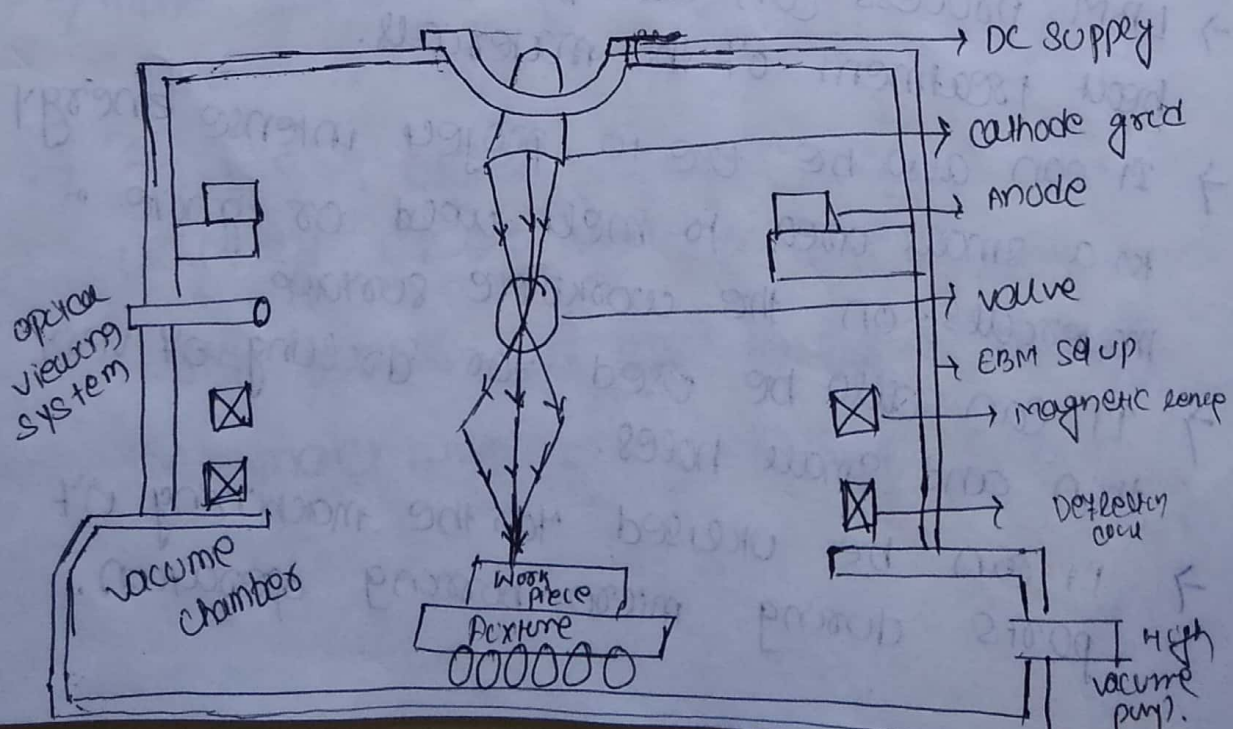 DC supply
cathode grid
Anode
valve
EBM set up
magnetic
Deflection
optical
viewing
system
vacume
chamber
work
piece
High
vacume